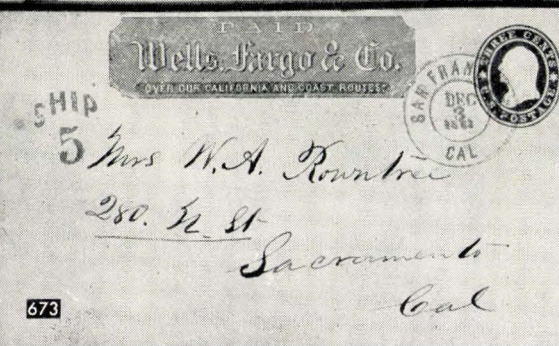 PAID
Wells, Fargo & Co.
OVER OUR CALIFORNIA AND COAST ROUTES
THREE CENTS
U.S. POSTAGE
SAN FRAN
DEC
3
CAL
SHIP
5
Mrs W. A. Rowntree
280. N. St
Sacramento
Cal
673